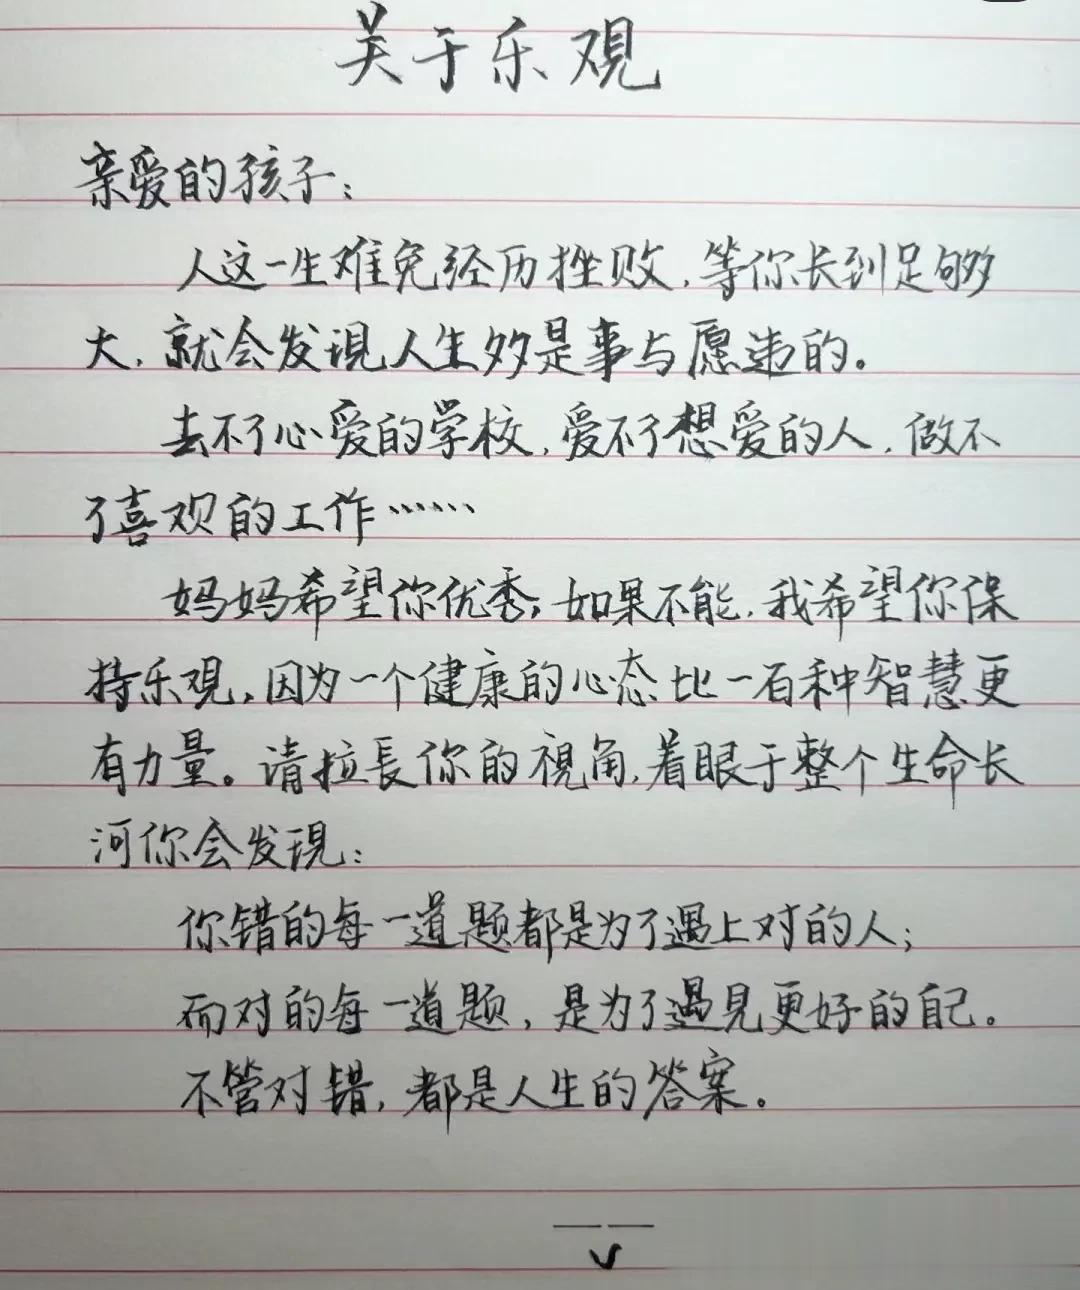 关于乐观
亲爱的孩子：
人这一生难免经历挫败，等你长到足够
大，就会发現人生多是事与愿违的。
去不了心爱的学校，爱不了想爱的人，做不
了喜欢的工作……
妈妈希望你优秀；如果不能，我希望你保
持乐观，因为一个健康的心态比一百种智慧更
有力量。请拉長你的視角，着眼于整个生命长
河你会发現：
你错的每一道题都是为了遇上对的人；
而对的每一道题，是为了遇見更好的自己。
不管对错，都是人生的答案。